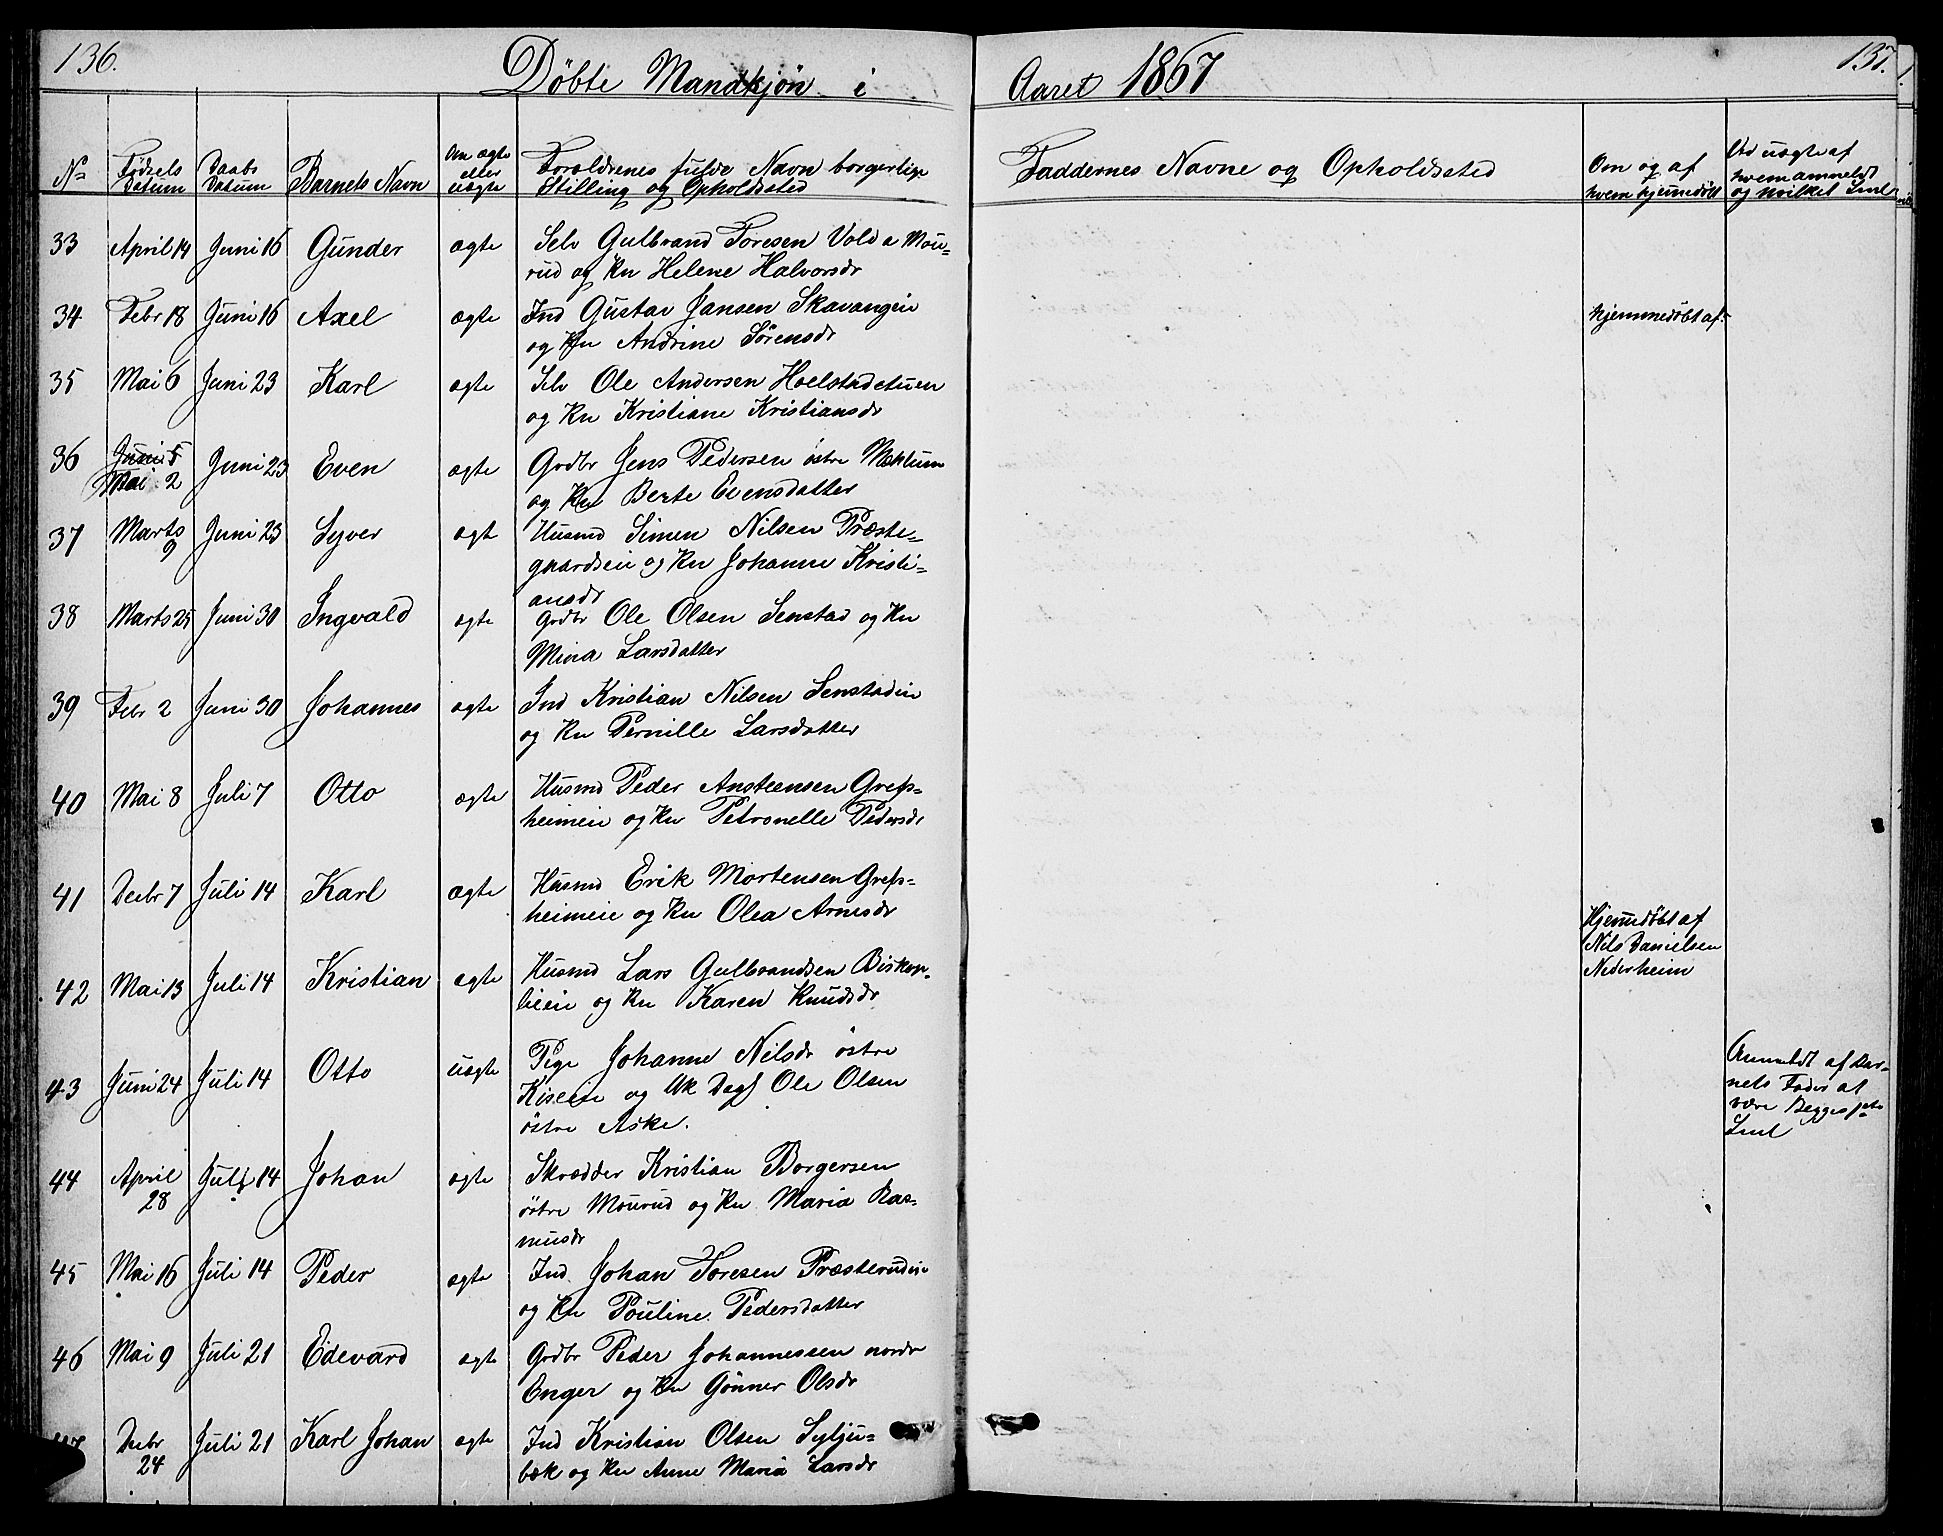 136.
Døbte Mandkjøn i
Aaret 1867
137.
No Fødsels Datum Daabs Datum Barnets Navn Om ægte eller uægte Forældrenes fulde Navn borgerlige Stilling og Opholdssted
Faddernes Navne og Opholdssted
Om og af hvem hjemmedøbt
Ved uægte af hvem anmeldt og hvilket Leul
33 April 14 Juni 16 Gunder ægte Selv Gulbrand Toresen Volda Mou-
rud og Kn Helene Halvorsdr
34 Febr 18 Juni 16 Axel ægte Ind Gustav Jansen Skavangeie
hjemmedøbt af
og Kn Andrine Sörensdr
35 Mai 6 Juni 23 Karl ægte Selv Ole Andersen Hoelstadstuen
og Kn Kristiane Kristiansdr
36 Juni 5 Mai 2 Juni 23 Even ægte Grdbr Jens Pedersen östre Mæhlum
og Kn Berte Evensdatter
37 Marts 9 Juni 23 Syver ægt Husmd Simen Nilsen Præste-
gaardseie og Kn Johanne Kristi-
ansdr
38 Marts 25 Juni 30 Ingvald ægte Grdbr Ole Olsen Senstad og Kn
Mina Larsdatter
39 Febr 2 Juni 30 Johannes ægte Ind Kristian Nilsen Senstadeie
og Kn Pernille Larsdatter
40 Mai 8 Juli 7 Otto ægte Husmd Peder Ansteensen Grefs-
heimeie og Kn Petronelle Pedersdr
41 Decbr 7 Juli 14 Karl ægte Husmd Erik Mortensen Grefs-
heimeie og Kn Olea Arnesdr
Hjemmedøbt af
Nils Danielsen
Nederheim
42 Mai 13 Juli 14 Kristian ægte Husmd Lars Gulbrandsen Biskop-
lieeie og Kn Karen Knudsdr
43 Juni 24 Juli 14 Otto uægte Pige Johanne Nilsdr östre
Kiseeie og Uk Dagf Ole Olsen
östre Aske.
Anmeldt af Bar-
nets Fader at
være Begges
Leul
44 April 28 Juli 14 Johan ægte Skrædder Kristian Borgersen
östre Mourud og Kn Maria Ras-
musdr
45 Mai 16 Juli 14 Peder ægte Ind. Johan Toresen Præsterudeie
og Kn Pouline Pedersdatter
46 Mai 9 Juli 21 Edevard ægte Grdbr Peder Johannessen nordr
Enger og Kn Gönner Olsdr
47 Decbr 24 Juli 21 Karl Johan ægte Ind Kristian Olsen Sylju-
bæk og Kn Anne Maria Larsdr